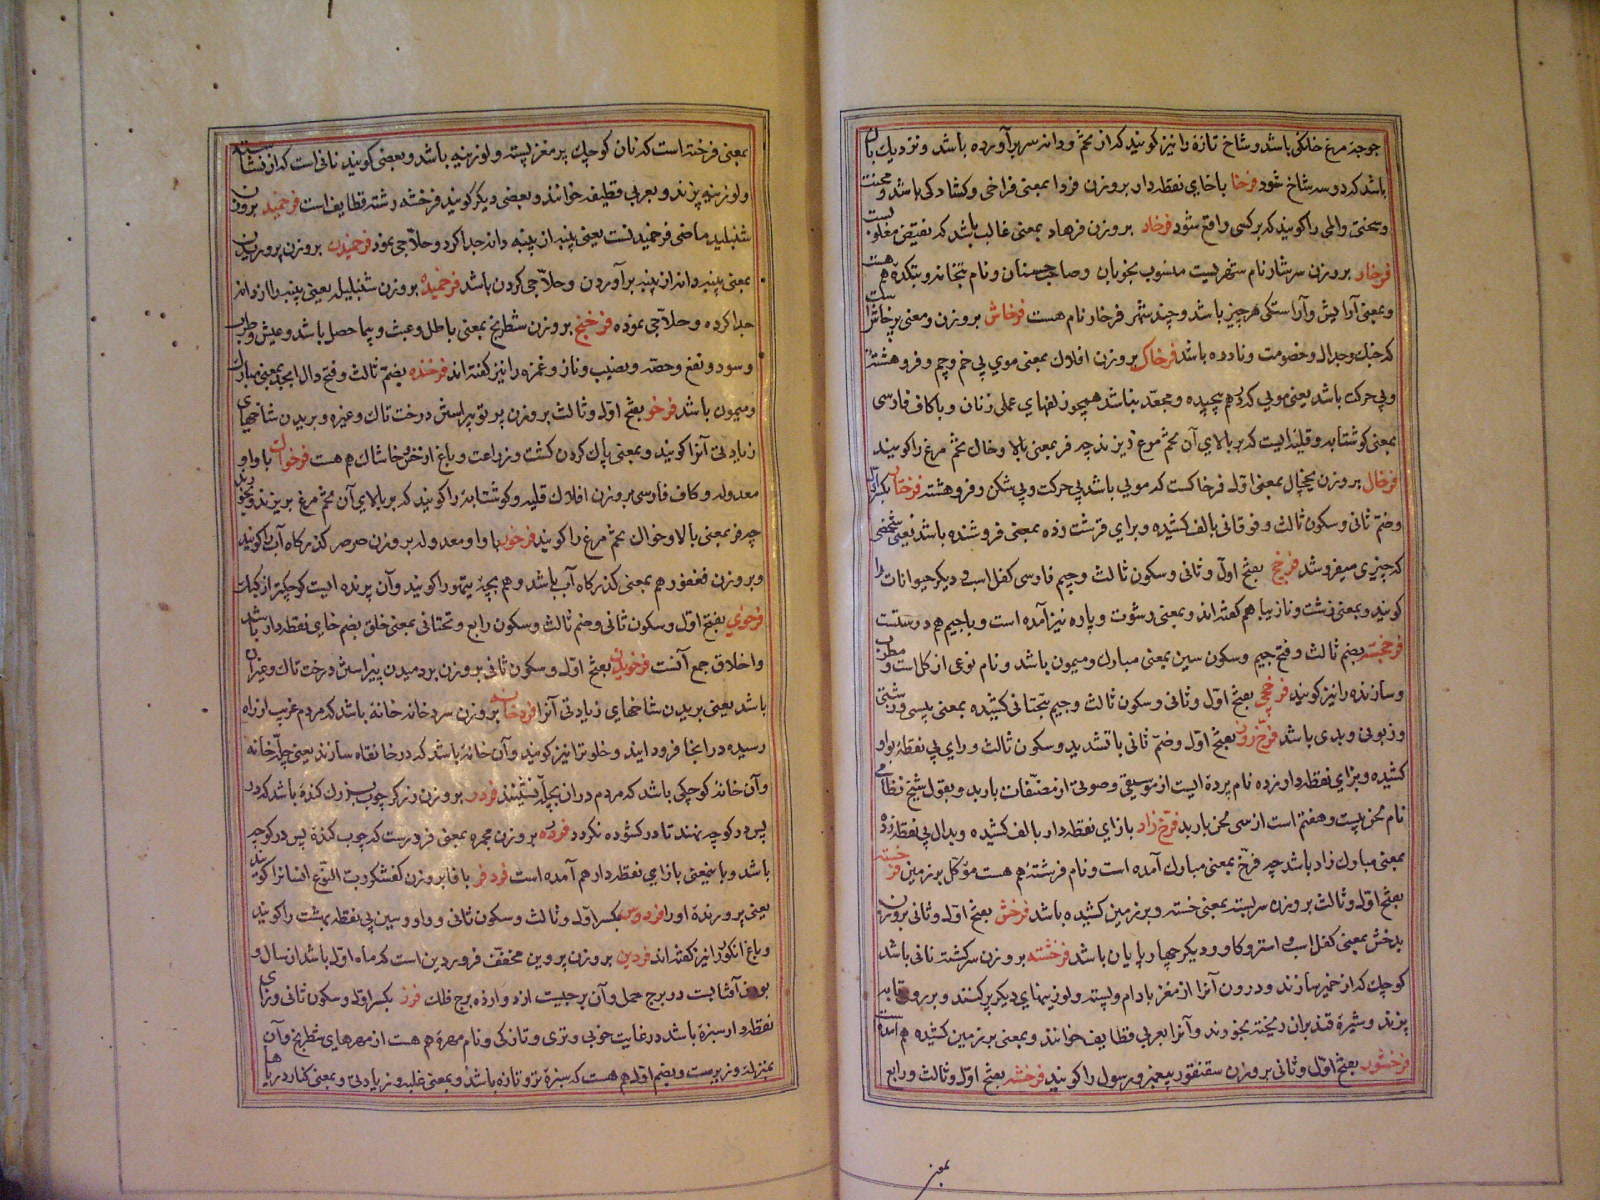 جوجهٔ مرغ خانگی باشد و شاخ تازه را نیز گویند که از تخم و دانه سر برآورده باشد و نزدیک بآن
باشد که دو سه شاخ شود فرخا با خای نقطه‌دار بروزن فردا بمعنی فراخی و گشادگی باشد و محنت
و سختی و المی را گویند که بر کسی واقع شود فرخاد بروزن فرهاد بمعنی غالب باشد که نقیض مغلوب است
فرخار بروزن سرشار نام شهریست منسوب بخوبان و صاحب حسنان و نام بتخانه و بتکده هم هست
و بمعنی آرایش و آراستگی هر چیز باشد و چند شهر فرخار نام هست فرخاش بروزن و معنی پرخاش است
که جنگ و جدال و خصومت و نادره باشد فرخاک بروزن افلاک بمعنی موی بی خم و چم و فروهشته
و بی حرکت باشد یعنی مویی که درهم پیچیده و مجعد نباشد همچو زلفهای عملی زنان و با کاف فارسی
بمعنی گوشتابه و قلیهٔ ایست که بر بالای آن تخم مرغ ریزند چه فر بمعنی بالا و خاک تخم مرغ را گویند
فرخال بروزن چنچال بمعنی اول فرخاکست که مویی باشد بی حرکت و بی شکن و فروهشته فرختار بکسر اول
و ضم ثانی و سکون ثالث و فوقانی بالف کشیده و برای قرشت زده بمعنی فروشنده باشد یعنی شخصی
که چیزی میفروشد فرخج بفتح اول و ثانی و سکون ثالث و جیم فارسی کفل اسب و دیگر حیوانات را
گویند و بمعنی زشت و نازیبا هم گفته‌اند و بمعنی رشوت و پاره نیز آمده است و با جیم هم درستست
فرخجسته بضم ثالث و فتح جیم و سکون سین بمعنی مبارک و میمون باشد و نام نوعی از گل است و مطرب
و سازنده را نیز گویند فرخجی بفتح اول و ثانی و سکون ثالث و جیم بتحتانی کشیده بمعنی پلیسی و زشتی
و زبونی و بدی باشد فرخ روز بفتح اول و ضم ثانی با تشدید و سکون ثالث و رای بی نقطهٔ بواو
کشیده و بزای نقطه‌دار زده نام پردهٔ ایست از موسیقی و صوتی از مصنفات باربد و بقول شیخ نظامی
نام لحن بیست و هفتم است از سی لحن باربد فرخ زاد با زای نقطه‌دار بالف کشیده و بدال بی نقطه زده
بمعنی مبارک زاد باشد چه فرخ بمعنی مبارک آمده است و نام فرشتهٔ هم هست موکل بر زمین فرخسته
بفتح اول و ثالث بروزن سربسته بمعنی خسته و بر زمین کشیده باشد فرخش بفتح اول و ثانی بروزن
بدخش بمعنی کفل اسب و استر و گاو و دیگر چهارپایان باشد فرخشته بروزن سرگشته نانی باشد
کوچک که از خمیر سازند و درون آنرا از مغز بادام و پسته و لوزینهای دیگر پر کنند و بر روی تابه
پزند و شیرهٔ قند بران ریخته بخورند و آنرا بعربی قطایف خوانند و بمعنی بر زمین کشیده هم آمده است
فرخشور بفتح اول و ثانی بروزن سقنقور پیغمبر و رسول را گویند فرخشه بفتح اول و ثالث و رابع
بمعنی
بمعنی فرخشته است که نان کوچک پر مغز پسته و لوزینه باشد و بعضی گویند نانی است که از نشاسته
و لوزینه پزند و بعربی قطیفه خوانند و بعضی دیگر گویند فرخشه رشتهٔ قطایف است فرخمید بروزن
شنبلید ماضی فرخمیدنست یعنی پنبه از پنبه دانه جدا کرد و حلاجی نمود فرخمیدن بروزن پروریدن
بمعنی پنبه دانه از پنبه برآوردن و حلاجی کردن باشد فرخمیده بروزن شنبلیله یعنی پنبه را از دانه
جدا کرده و حلاجی نموده فرخنج بروزن شطرنج بمعنی باطل و عبث و بیماحصل باشد و عیش و طرب
و سود و نفع و حصه و نصیب و ناز و غمزه را نیز گفته‌اند فرخنده بضم ثالث و فتح دال ابجد بمعنی مبارک
و میمون باشد فرخو بفتح اول و ثالث بروزن پرتو پیراستن درخت تاک و غیره و بریدن شاخهای
زیادتی آنرا گویند و بمعنی پاک کردن کشت و زراعت و باغ از خس و خاشاک هم هست فرخواک با واو
معدوله و کاف فارسی بروزن افلاک قلیه و گوشتابه را گویند که بر بالای آن تخم مرغ بریزند و بخورند
چه فر بمعنی بالا و خواک تخم مرغ را گویند فرخور با واو معدوله بروزن صرصر گذرگاه آب را گویند
و بروزن فغفور هم بمعنی گذرگاه آب باشد و هم بچهٔ تیهو را گویند و آن پرنده ایست کوچکتر از کبک
فرخوی بفتح اول و سکون ثانی و ضم ثالث و سکون رابع و تحتانی بمعنی خلق بضم خای نقطه‌دار باشد
و اخلاق جمع آنست فرخویدن بفتح اول و سکون ثانی بروزن بردمیدن پیراستن درخت تاک و غیر آن
باشد یعنی بریدن شاخهای زیادتی آنرا فردخانه بروزن سردخانه خانهٔ باشد که مردم غریب از راه
رسیده در آنجا فرود آیند و خلوتر انیز گویند و آن خانهٔ باشد که در خانقاه سازند یعنی چله خانه
و آن خانهٔ کوچکی باشد که مردم دران بچله نشینند فردر بروزن زرگر چوب بزرگ کنده باشد که در
پس در کوچه نهند تا در گشوده نگردد فردره بروزن مجمره بمعنی فردرست که چوب کندهٔ پس در کوچه
باشد و باینمعنی با زای نقطه‌دار هم آمده است فردفر با فا بروزن کفشگر رب النوع انسانرا گویند
یعنی پرورندهٔ او را فردوس بکسر اول و ثالث و سکون ثانی و واو و سین بی نقطه بهشت را گویند
و باغ انگور را نیز گفته‌اند فردین بروزن پروین مخفف فروردین است که ماه اول باشد از سال و
بودن آفتابست در برج حمل و آن برجیست از دوازده برج فلک فرز بکسر اول و سکون ثانی و زای
نقطه‌دار سبزهٔ باشد در غایت خوبی و تری و تازگی و نام مهرهٔ هم هست از مهرهای شطرنج و آن
بمنزلهٔ وزیرست و بضم اول هم هست که سبزهٔ تر و تازه باشد و بمعنی غلبه و زیادتی و بمعنی کنار دریاها